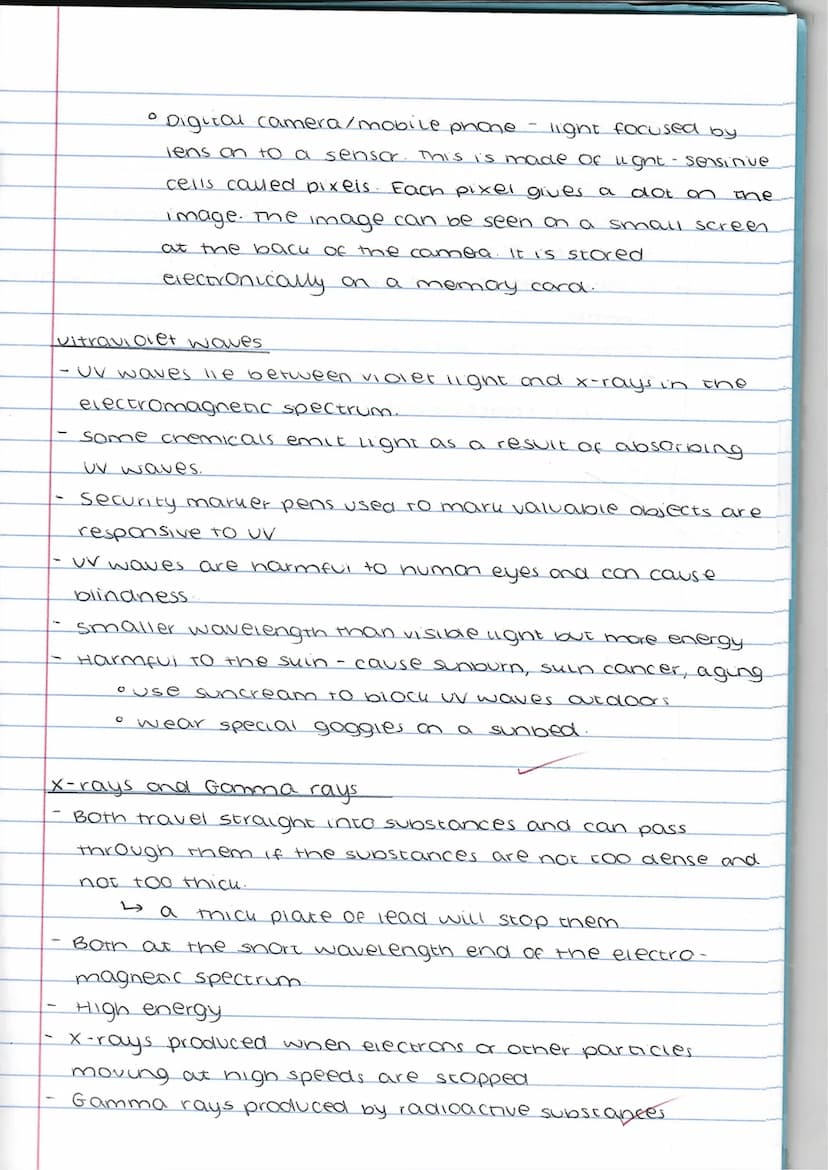 ° Digital camera/mobile phone - light focused by
lens on to a sensor. This is made of light-sensitive
cells called pixels. Each pixel gives a dot on the
image. The image can be seen on a small screen
at the back of the camea. It is stored
electronically on a memory card.
Ultraviolet waves
- UV waves lie between violet light and x-rays in the
electromagnetic spectrum.
- Some chemicals emit light as a result of absorbing
UV waves.
- Security marker pens used to mark valuable objects are
responsive to UV
- UV waves are harmful to human eyes and can cause
blindness.
- Smaller wavelength than visible light but more energy
- Harmful to the skin - cause sunburn, skin cancer, aging
° use suncream to block UV waves outdoors
° wear special goggles on a sunbed.
X-rays and Gamma rays
- Both travel straight into substances and can pass
through them if the substances are not too dense and
not too thick.
↳ a thick plate of lead will stop them
- Both at the short wavelength end of the electro-
magnetic spectrum
- High energy
- X-rays produced when electrons or other particles
moving at high speeds are stopped
- Gamma rays produced by radioactive substances